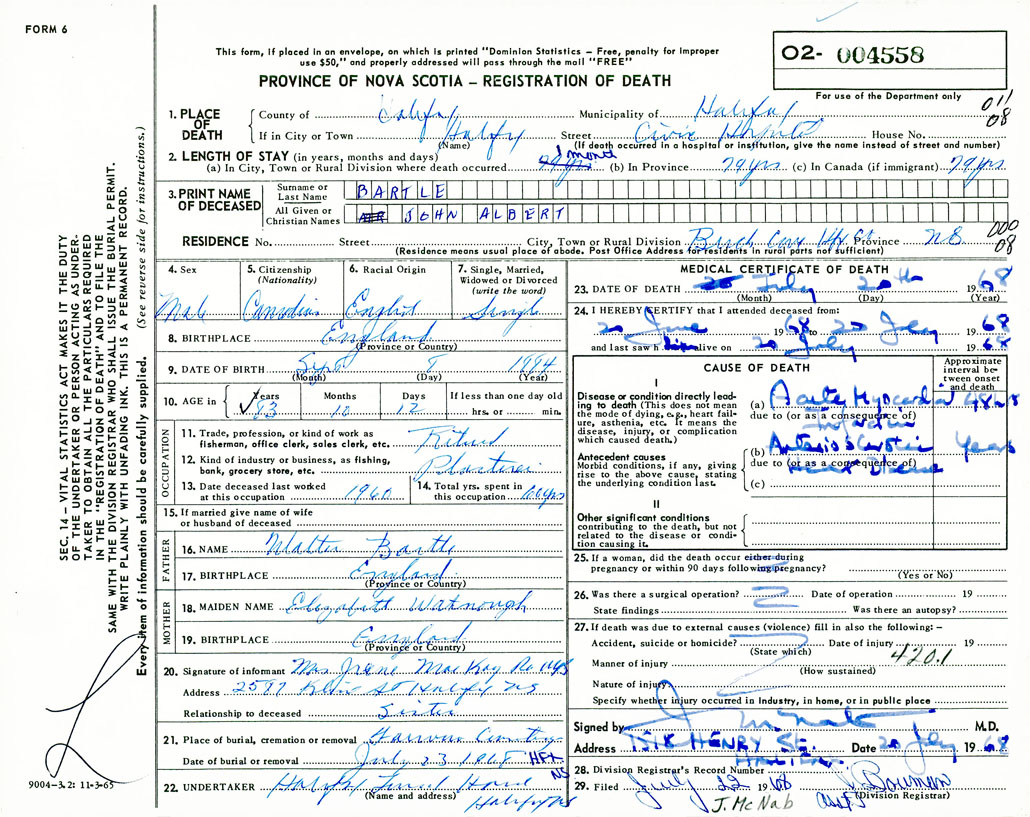 FORM 6
This form, if placed in an envelope, on which is printed "Dominion Statistics – Free, penalty for improper
use $50," and properly addressed will pass through the mail "FREE"
PROVINCE OF NOVA SCOTIA – REGISTRATION OF DEATH
O2- 004558
For use of the Department only
011
08
1. PLACE OF DEATH
County of Halifax Municipality of Halifax
If in City or Town Halifax Street Civic Hospital House No.
(Name) (If death occurred in a hospital or institution, give the name instead of street and number)
2. LENGTH OF STAY (in years, months and days)
(a) In City, Town or Rural Division where death occurred 1 month (b) In Province 79 yrs (c) In Canada (if immigrant) 79 yrs
3. PRINT NAME OF DECEASED
Surname or Last Name BARTLE
All Given or Christian Names JOHN ALBERT
RESIDENCE No. Street City, Town or Rural Division Birch Cove Hfx Co Province NS
(Residence means usual place of abode. Post Office Address for residents in rural parts not sufficient)
000
08
4. Sex
Male
5. Citizenship (Nationality)
Canadian
6. Racial Origin
English
7. Single, Married, Widowed or Divorced (write the word)
Single
8. BIRTHPLACE England
(Province or Country)
9. DATE OF BIRTH Sept 8 1884
(Month) (Day) (Year)
10. AGE in Years Months Days If less than one day old
83 10 12 hrs. or min.
OCCUPATION
11. Trade, profession, or kind of work as fisherman, office clerk, sales clerk, etc. Retired
12. Kind of industry or business, as fishing, bank, grocery store, etc. Plasterer
13. Date deceased last worked at this occupation 1960
14. Total yrs. spent in this occupation yrs
15. If married give name of wife or husband of deceased
FATHER
16. NAME Walter Bartle
17. BIRTHPLACE England
(Province or Country)
MOTHER
18. MAIDEN NAME Elizabeth Watnough
19. BIRTHPLACE England
(Province or Country)
20. Signature of informant Mrs Irene MacKay
Address 2597 St Halifax NS
Relationship to deceased Sister
21. Place of burial, cremation or removal
Date of burial or removal July 23 1968 HFX NS
22. UNDERTAKER Halifax Funeral Home
(Name and address) Halifax NS
MEDICAL CERTIFICATE OF DEATH
23. DATE OF DEATH July 20th 1968
(Month) (Day) (Year)
24. I HEREBY CERTIFY that I attended deceased from:
20 June 1968 to 20 July 1968
and last saw h alive on 20 July 1968
CAUSE OF DEATH
Approximate interval between onset and death
I
Disease or condition directly leading to death (This does not mean the mode of dying, e.g., heart failure, asthenia, etc. It means the disease, injury, or complication which caused death.)
(a) Acute Myocardial 48 hrs
due to (or as a consequence of)
Infarction
Antecedent causes
Morbid conditions, if any, giving rise to the above cause, stating the underlying condition last.
(b) Arteriosclerotic years
due to (or as a consequence of)
Heart Disease
(c)
II
Other significant conditions contributing to the death, but not related to the disease or condition causing it.
25. If a woman, did the death occur either during pregnancy or within 90 days following pregnancy?
(Yes or No)
26. Was there a surgical operation? Date of operation 19
State findings Was there an autopsy?
27. If death was due to external causes (violence) fill in also the following: –
Accident, suicide or homicide? Date of injury 19
(State which)
420.1
Manner of injury
(How sustained)
Nature of injury
Specify whether injury occurred in industry, in home, or in public place
Signed by J McNab M.D.
Address 1518 HENRY ST. Date 20 July 1968
HALIFAX
28. Division Registrar's Record Number
29. Filed July 22 1968 J. Bowman
(Division Registrar)
J. McNab
SEC. 14 – VITAL STATISTICS ACT MAKES IT THE DUTY
OF THE UNDERTAKER OR PERSON ACTING AS UNDERTAKER TO OBTAIN ALL THE PARTICULARS REQUIRED
IN THE "REGISTRATION OF DEATH" AND TO FILE THE
SAME WITH THE DIVISION REGISTRAR WHO SHALL ISSUE THE BURIAL PERMIT.
WRITE PLAINLY WITH UNFADING INK. THIS IS A PERMANENT RECORD.
Every item of information should be carefully supplied. (See reverse side for instructions.)
9004-3.2: 11-3-65